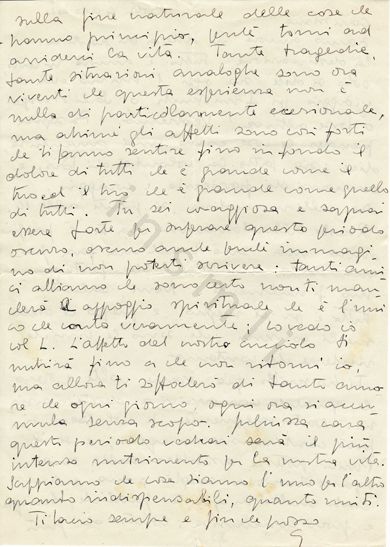 sulla fine naturale delle cose che
hanno principio, perché torni ad
arriderci la vita. Tante tragedie,
tante situazioni analoghe sono ora
viventi che questa esperienza non è
nulla di particolarmente eccezionale,
ma ahimè gli affetti sono così forti
che ti fanno sentire fino in fondo il
dolore di tutti che è grande come il
tuo ed il tuo che è grande come quello
di tutti. Tu sei coraggiosa e saprai
essere forte per superare questo periodo
oscuro, oscuro anche perché immagi
no di non poterti scrivere: tanti ami
ci abbiamo che sono certo non ti man
cherà l'appoggio spirituale che è l'uni
co che conta veramente; lo vedo io
col L. L'affetto del nostro cucciolo ti
nutrirà fino a che non ritorni io,
ma allora ti soffocherò di tanto amo
re che ogni giorno, ogni ora si accu
mula senza scopo. cara
questo periodo vedrai sarà il più
intenso nutrimento per la nostra vita.
Sappiamo che cosa siamo l'uno per l'altro
quanto indispensabili, quanto uniti.
Ti bacio sempre e fin che posso
G